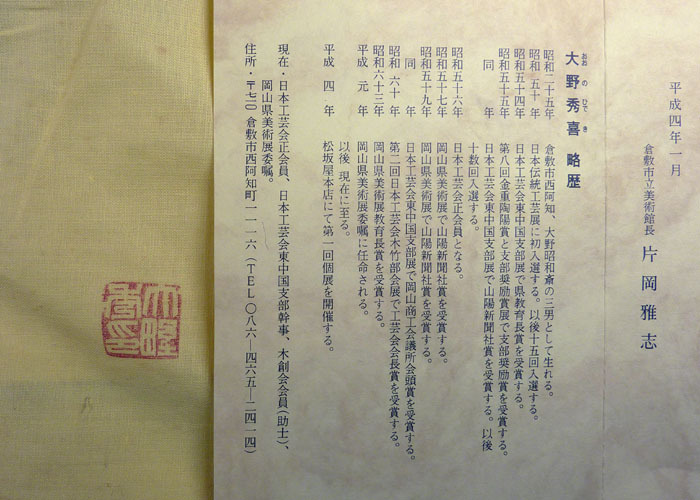 平成四年一月
倉敷市立美術館長 片岡雅志
大野秀喜 略歴
おおのひでき
昭和二十五年 倉敷市西阿知、大野昭和斎の三男として生れる。
昭和 五十 年 日本伝統工芸展に初入選する。以後十五回入選する。
昭和五十四年 日本工芸会東中国支部展で県教育長賞を受賞する。
昭和五十五年 第八回金重陶陽賞と支部奨励賞展で支部奨励賞を受賞する。
同 年 日本工芸会東中国支部展で山陽新聞社賞を受賞する。以後
十数回入選する。
昭和五十六年 日本工芸会正会員となる。
昭和五十七年 岡山県美術展で山陽新聞社賞を受賞する。
昭和五十九年 岡山県美術展で山陽新聞社賞を受賞する。
同 年 日本工芸会東中国支部展で岡山商工会議所会頭賞を受賞する。
昭和 六十 年 第二回日本工芸会木竹部会展で工芸会会長賞を受賞する。
昭和六十三年 岡山県美術展教育長賞を受賞する。
平成 元 年 岡山県美術展委嘱に任命される。
以後 現在に至る。
平成 四 年 松坂屋本店にて第一回個展を開催する。
現在・日本工芸会正会員、日本工芸会東中国支部幹事、木創会会員(助士)、
岡山県美術展委嘱。
住所・〒七一〇 倉敷市西阿知町一一一六(TEL〇八六―四六五―二四一四)